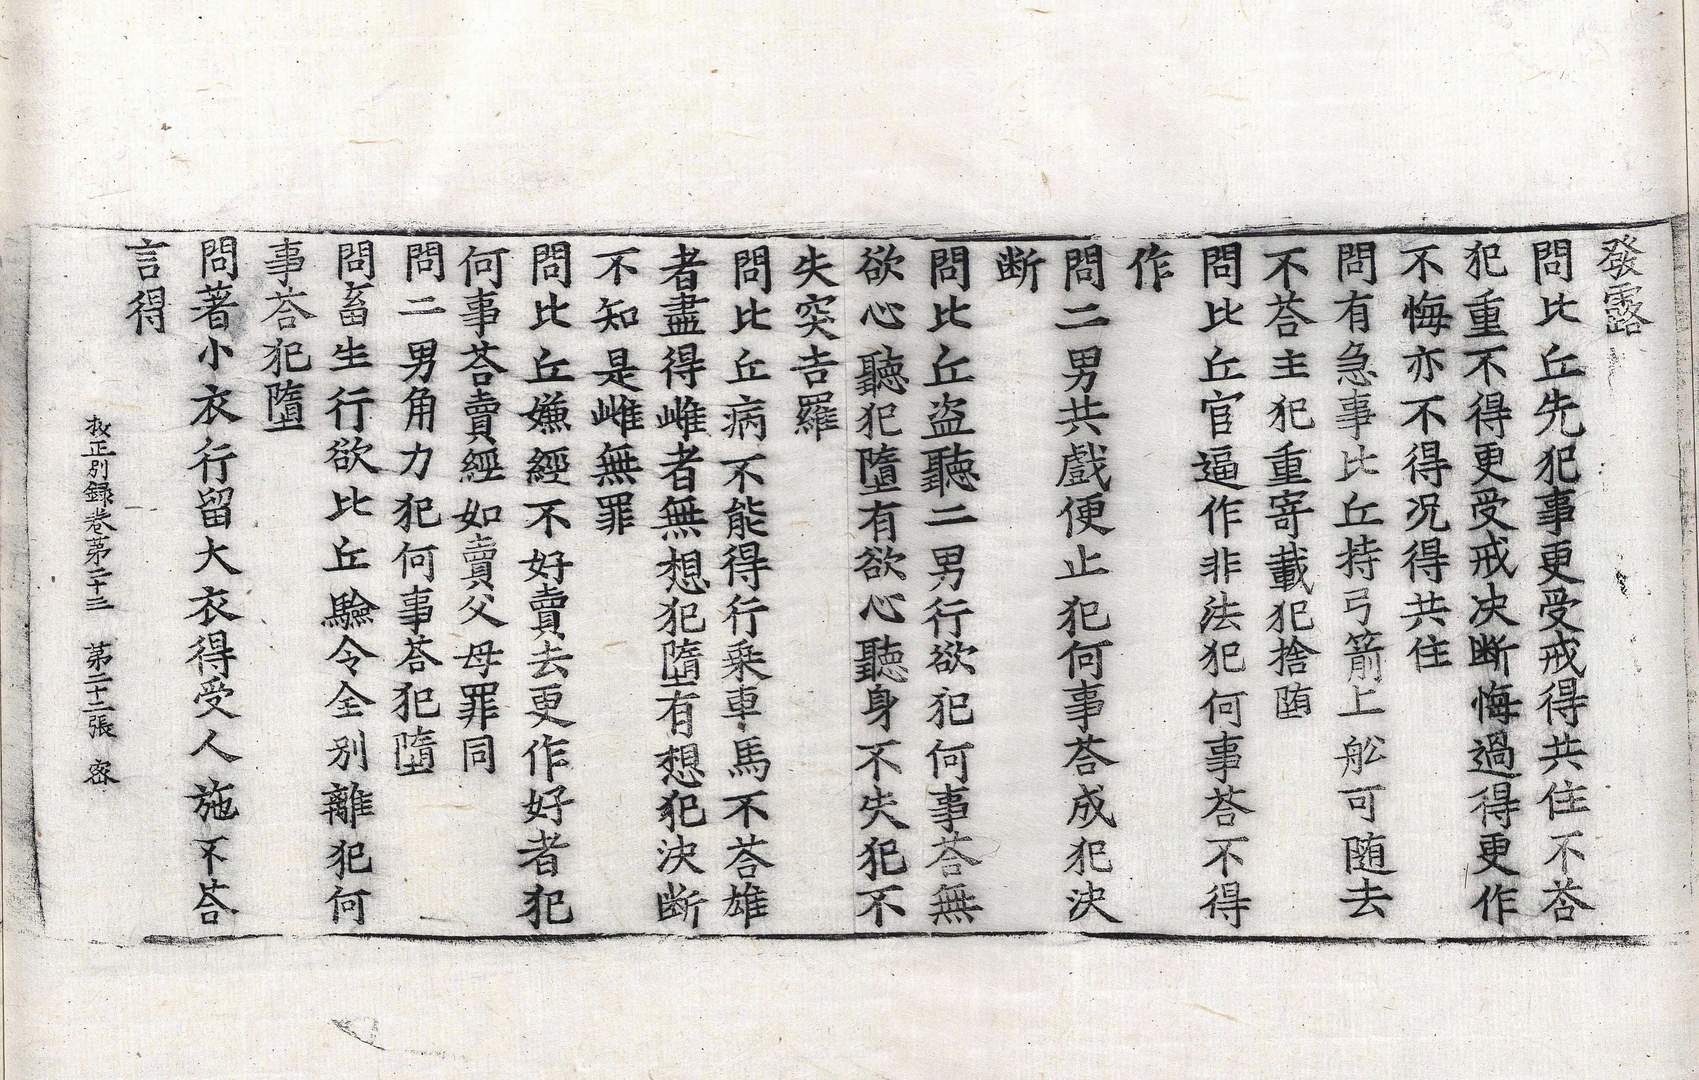 發露
問比丘先犯事更受戒得共住不荅
犯重不得更受戒决断悔過得更作
不悔亦不得况得共住
問有急事比丘持弓箭上舩可随去
不荅主犯重寄載犯捨堕
問比丘官逼作非法犯何事荅不得
作
問二男共戲便止犯何事荅成犯决
断
問比丘盗聽二男行欲犯何事荅無
欲心聽犯墮有欲心聽身不失犯不
失突吉羅
問比丘病不能得行乗車馬不荅雄
者盡得雌者無想犯墮有想犯决断
不知是雌無罪
問比丘嫌經不好賣去更作好者犯
何事荅賣經如賣父母罪同
問二男角力犯何事荅犯墮
問畜生行欲比丘驗令全别離犯何
事荅犯墮
問著小衣行留大衣得受人施不荅
言得
校正别録卷第二十三 第二十二張 密